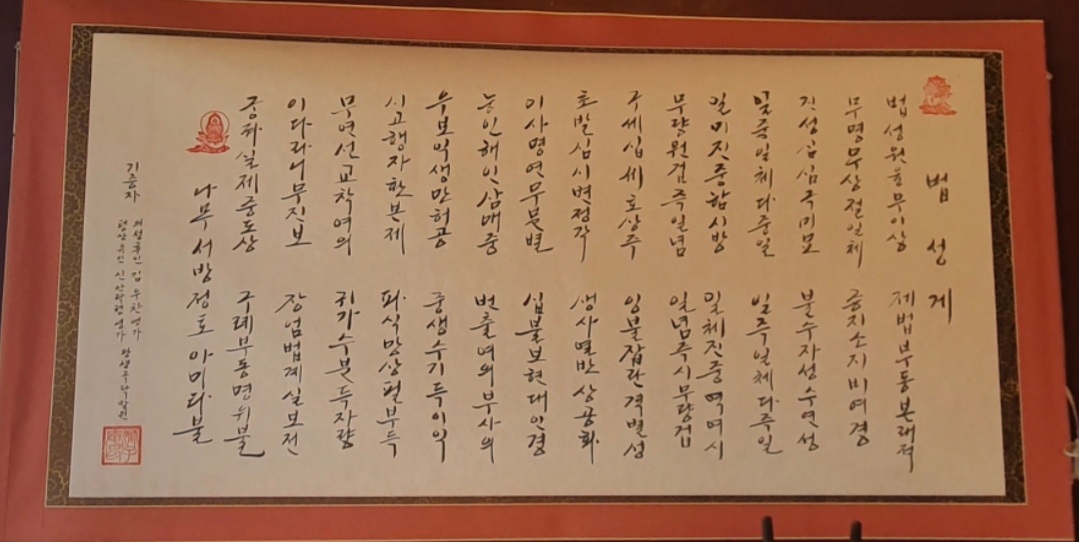 법성게
법성원융무이상 제법부동본래적
무명무상절일체 증지소지비여경
진성심심극미묘 불수자성수연성
일중일체다중일 일즉일체다즉일
일미진중함시방 일체진중역여시
무량원겁즉일념 일념즉시무량겁
구세십세호상즉 잉불잡란격별성
초발심시변정각 생사열반상공화
이사명연무분별 십불보현대인경
능인해인삼매중 번출여의부사의
우보익생만허공 중생수기득이익
시고행자환본제 파식망상필부득
무연선교착여의 귀가수분득자량
이다라니무진보 장엄법계실보전
궁좌실제중도상 구래부동명위불
나무서방정토아미타불
기증자 김우찬영가
평산유인 신안락행영가